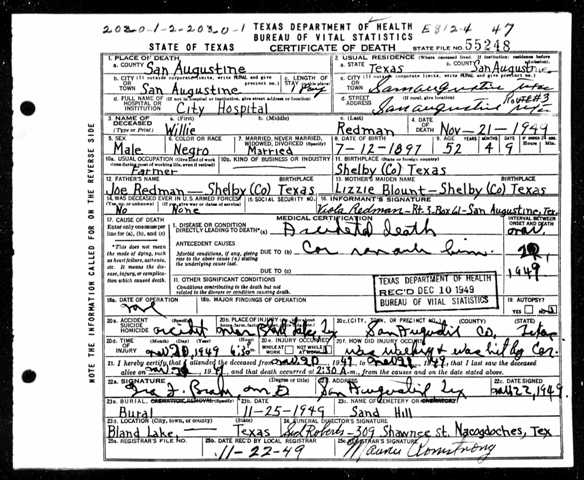 2020-1-2-2020-1
TEXAS DEPARTMENT OF HEALTH
E8124 47
BUREAU OF VITAL STATISTICS
STATE OF TEXAS
CERTIFICATE OF DEATH
STATE FILE NO. 55248
1. PLACE OF DEATH
2. USUAL RESIDENCE (Where deceased lived. If institution: residence before admission)
a. COUNTY San Augustine
a. STATE Texas
b. COUNTY San Augustine
b. CITY
OR
TOWN San Augustine
c. LENGTH OF
STAY
1 Day
c. CITY
OR
TOWN San Augustine
d. FULL NAME OF
HOSPITAL OR
INSTITUTION City Hospital
d. STREET
ADDRESS
Route #3
San Augustine
3. NAME OF
DECEASED
(Type or Print)
a. (First) Willie
b. (Middle)
c. (Last) Redman
4. DATE
OF
DEATH Nov-21-1949
5. SEX Male
6. COLOR OR RACE Negro
7. MARRIED, NEVER MARRIED,
WIDOWED, DIVORCED (Specify)
Married
8. DATE OF BIRTH 7-12-1897
9. AGE YEARS 52 MONTHS 4 DAYS 9
10a. USUAL OCCUPATION
Farmer
10b. KIND OF BUSINESS OR INDUSTRY
11. BIRTHPLACE (State or foreign country)
Shelby (Co) Texas
12. FATHER'S NAME
Joe Redman-Shelby (Co) Texas
13. MOTHER'S MAIDEN NAME
Lizzie Blount-Shelby (Co) Texas
14. WAS DECEASED EVER IN U.S. ARMED FORCES?
No None
15. SOCIAL SECURITY NO.
16. INFORMANT'S SIGNATURE
Viola Redman-Rt. 3, Box 61-San Augustine, Tex.
17. CAUSE OF DEATH
Enter only one cause per
line for (a), (b), and (c)
MEDICAL CERTIFICATION
INTERVAL BETWEEN
ONSET AND DEATH
I. DISEASE OR CONDITION
DIRECTLY LEADING TO DEATH (a)
death
*This does not mean
the mode of dying, such
as heart failure, asthenia,
etc. It means the disease,
injury, or complication
which caused death.
ANTECEDENT CAUSES
Morbid conditions, if any, giving
rise to the above cause (a) stating
the underlying cause last.
DUE TO (b) Car ran over him
DUE TO (c)
1949
II. OTHER SIGNIFICANT CONDITIONS
Conditions contributing to the death but not
related to the disease or condition causing death.
TEXAS DEPARTMENT OF HEALTH
REC'D DEC 10 1949
BUREAU OF VITAL STATISTICS
18a. DATE OF OPERATION
18b. MAJOR FINDINGS OF OPERATION
19. AUTOPSY?
YES NO
20a. ACCIDENT
SUICIDE
HOMICIDE
(Specify)
accident
20b. PLACE OF INJURY
near Bland Lake, Tex
20c. (CITY, TOWN, OR PRECINCT NO.) (COUNTY) (STATE)
San Augustine Co, Texas
20d. TIME
OF
INJURY
(Month) (Day) (Year) (Hour)
Nov 20, 1949 6:30
20e. INJURY OCCURRED
WHILE AT
WORK
NOT WHILE
AT WORK
20f. HOW DID INJURY OCCUR?
was walking & was hit by Car.
21. I hereby certify that I attended the deceased from Nov 20, 1949, to Nov 21, 1949, that I last saw the deceased
alive on Nov 21, 1949, and that death occurred at 2:30 A.m., from the causes and on the date stated above.
22a. SIGNATURE
(Degree or title)
M D
22b. ADDRESS
San Augustine Tex
22c. DATE SIGNED
Nov 22, 1949
23a. BURIAL, CREMATION, REMOVAL (Specify)
Burial
23b. DATE
11-25-1949
23c. NAME OF CEMETERY OR CREMATORY
Sand Hill
23d. LOCATION (City, town, or county) (State)
Bland Lake, Texas
24. FUNERAL DIRECTOR'S SIGNATURE
Sid Roberts-309 Shawnee St. Nacogdoches, Tex
25a. REGISTRAR'S FILE NO.
25b. DATE REC'D BY LOCAL REGISTRAR
11-22-49
25c. REGISTRAR'S SIGNATURE
Maurie Armstrong
NOTE THE INFORMATION CALLED FOR ON THE REVERSE SIDE